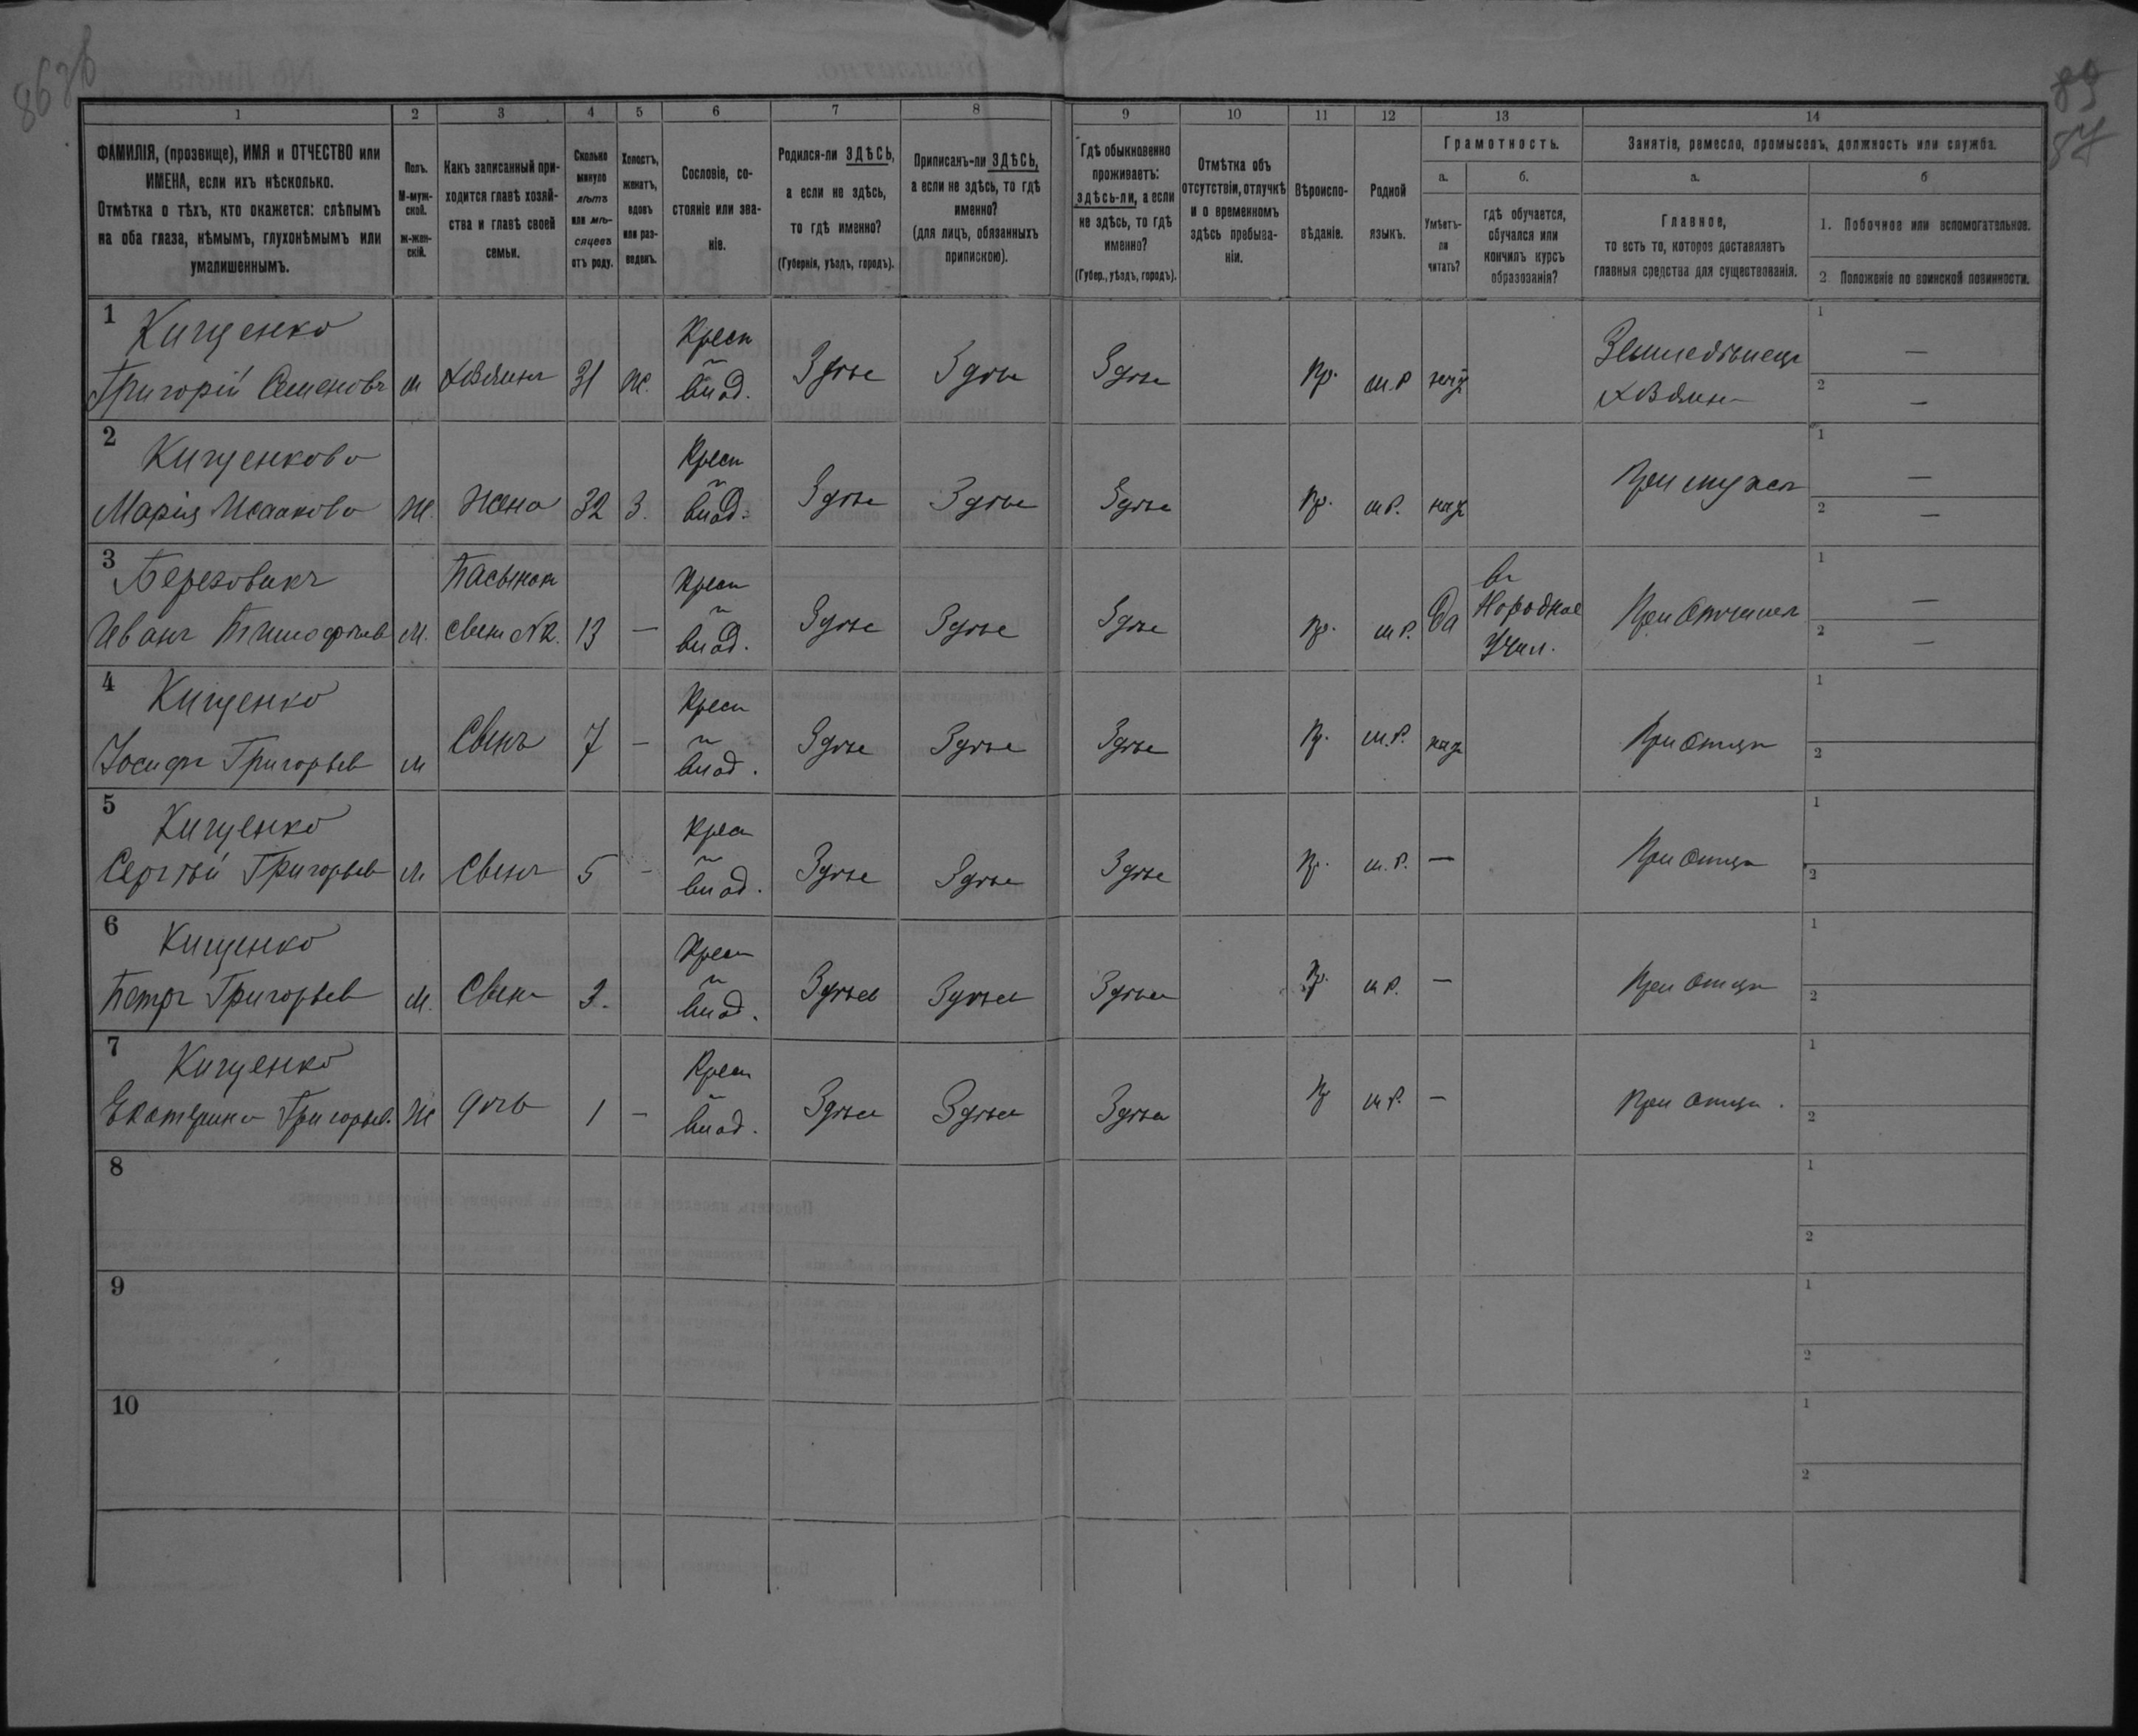 1 2 3 4 5 6 7 8 9 10 11 12 13 14
ФАМИЛІЯ, (прозвище), ИМЯ и ОТЧЕСТВО или
ИМЕНА, если ихъ нѣсколько.
Отмѣтка о тѣхъ, кто окажется: слѣпымъ
на оба глаза, нѣмымъ, глухонѣмымъ или
умалишеннымъ.
Полъ.
М-муж-
ской.
ж-жен-
скій.
Какъ записанный при-
ходится главѣ хозяй-
ства и главѣ своей
семьи.
Сколько
минуло
лѣтъ
или мѣ-
сяцевъ
отъ роду.
Холостъ,
женатъ,
вдовъ
или раз-
веденъ.
Сословіе, со-
стояніе или зва-
ніе.
Родился-ли ЗДѢСЬ,
а если не здѣсь,
то гдѣ именно?
(Губернія, уѣздъ, городъ).
Приписанъ-ли ЗДѢСЬ,
а если не здѣсь, то гдѣ
именно?
(для лицъ, обязанныхъ
припискою).
Гдѣ обыкновенно
проживаетъ:
здѣсь-ли, а если
не здѣсь, то гдѣ
именно?
(Губер., уѣздъ, городъ).
Отмѣтка объ
отсутствіи, отлучкѣ
и о временномъ
здѣсь пребыва-
ніи.
Вѣроиспо-
вѣданіе.
Родной
языкъ.
Грамотность.
а.
Умѣетъ-
ли
читать?
б.
гдѣ обучается,
обучался или
кончилъ курсъ
образованія?
Занятіе, ремесло, промыселъ, должность или служба.
а.
Главное,
то есть то, которое доставляетъ
главныя средства для существованія.
б
1. Побочное или вспомогательное.
2. Положеніе по воинской повинности.
1
Кищенко
Григорій Семеновъ м 31 ж. Крест Здѣсь Здѣсь Здѣсь Пр. м.р
1 —
2 —
2
Кищенкова
Марія Исаакова ж. жена 32 З. Крест Здѣсь Здѣсь Здѣсь Пр. м.р. При мужѣ
1 —
2 —
3
Березовикъ
Иванъ Тимофѣев м. Пасынок 13 — Крест Здѣсь Здѣсь Здѣсь Пр. м.р. Да
въ
Народное
Учил.
При Отчимѣ
1 —
2 —
4
Кищенко
Іосифъ Григорьев м Сынъ 7 — Крест Здѣсь Здѣсь Здѣсь Пр. м.р. При Отцѣ
1
2
5
Кищенко
Сергѣй Григорьев м Сынъ 5 - Крест Здѣсь Здѣсь Здѣсь Пр. м.р. — При Отцѣ
1
2
6
Кищенко
Петръ Григорьев м. Сынъ Крест Здѣсь Здѣсь Здѣсь Пр. м.р. — При Отцѣ
1
2
7
Кищенко
Екатерина Григорьев. ж дочь 1 — Крест Здѣсь Здѣсь Здѣсь Пр м.р. — При Отцѣ.
1
2
8
1
2
9
1
2
10
1
2